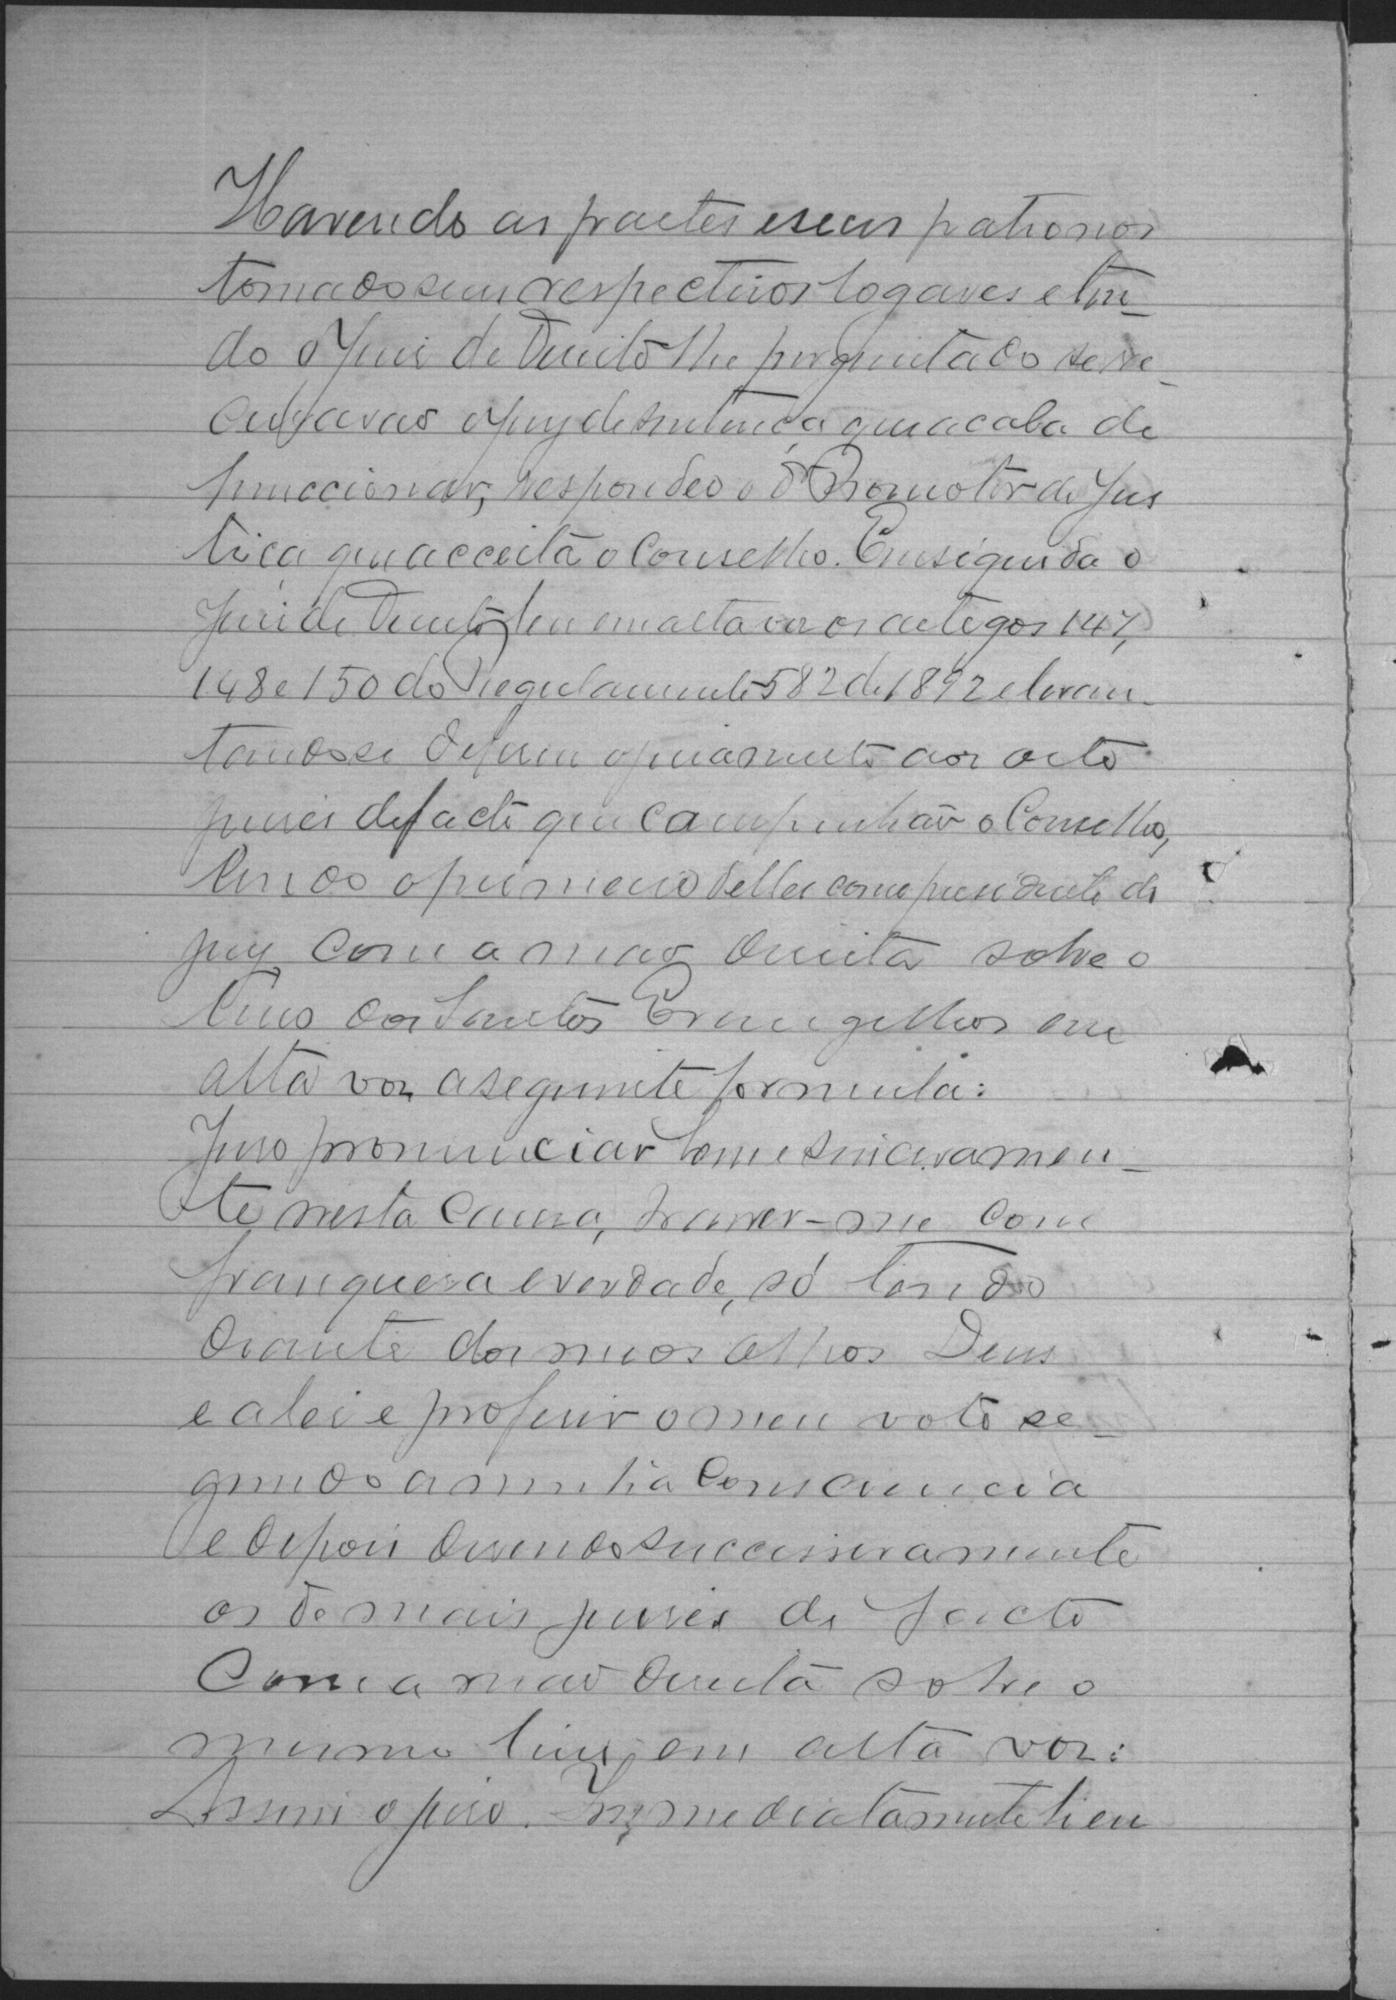 Havendo as partes e seus patronos
tomado seus respectivos logares e ten_
do o Juis de Direito lhe perguntado se re_
cusavão o jury de sentença que acaba de
funccionar, respondeo o Promotor de Jus
tiça que acceita o Conselho. Em seguida o
Juis de Direito leu em alta voz os artigos 147,
148 e 150 do Regulamento 582 de 1892 e levan_
tandose deferiu o juramento aos oito
juises de facto que compunhão o Conselho,
lendo o primeiro delles como presidente do
jury com a mão direita sobre o
livro dos Santos Evangelhos em
alta voz a seguinte formula:
Juro pronunciar bem e sinceramen_
te nesta causa, haver-me com
franquesa e verdade, só tendo
diante dos meos olhos Deus
e a lei e proferir o meu voto se_
gundo a minha consciencia
e depois disendo successivamente
os demais juises de facto
com a mão direita sobre o
mesmo livro, em alta voz:
Assim o juro. Immediatamente